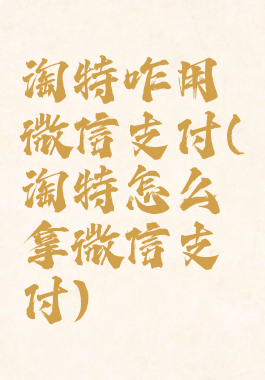 淘特咋用
微信支付(
淘特怎么
拿微信支
付)